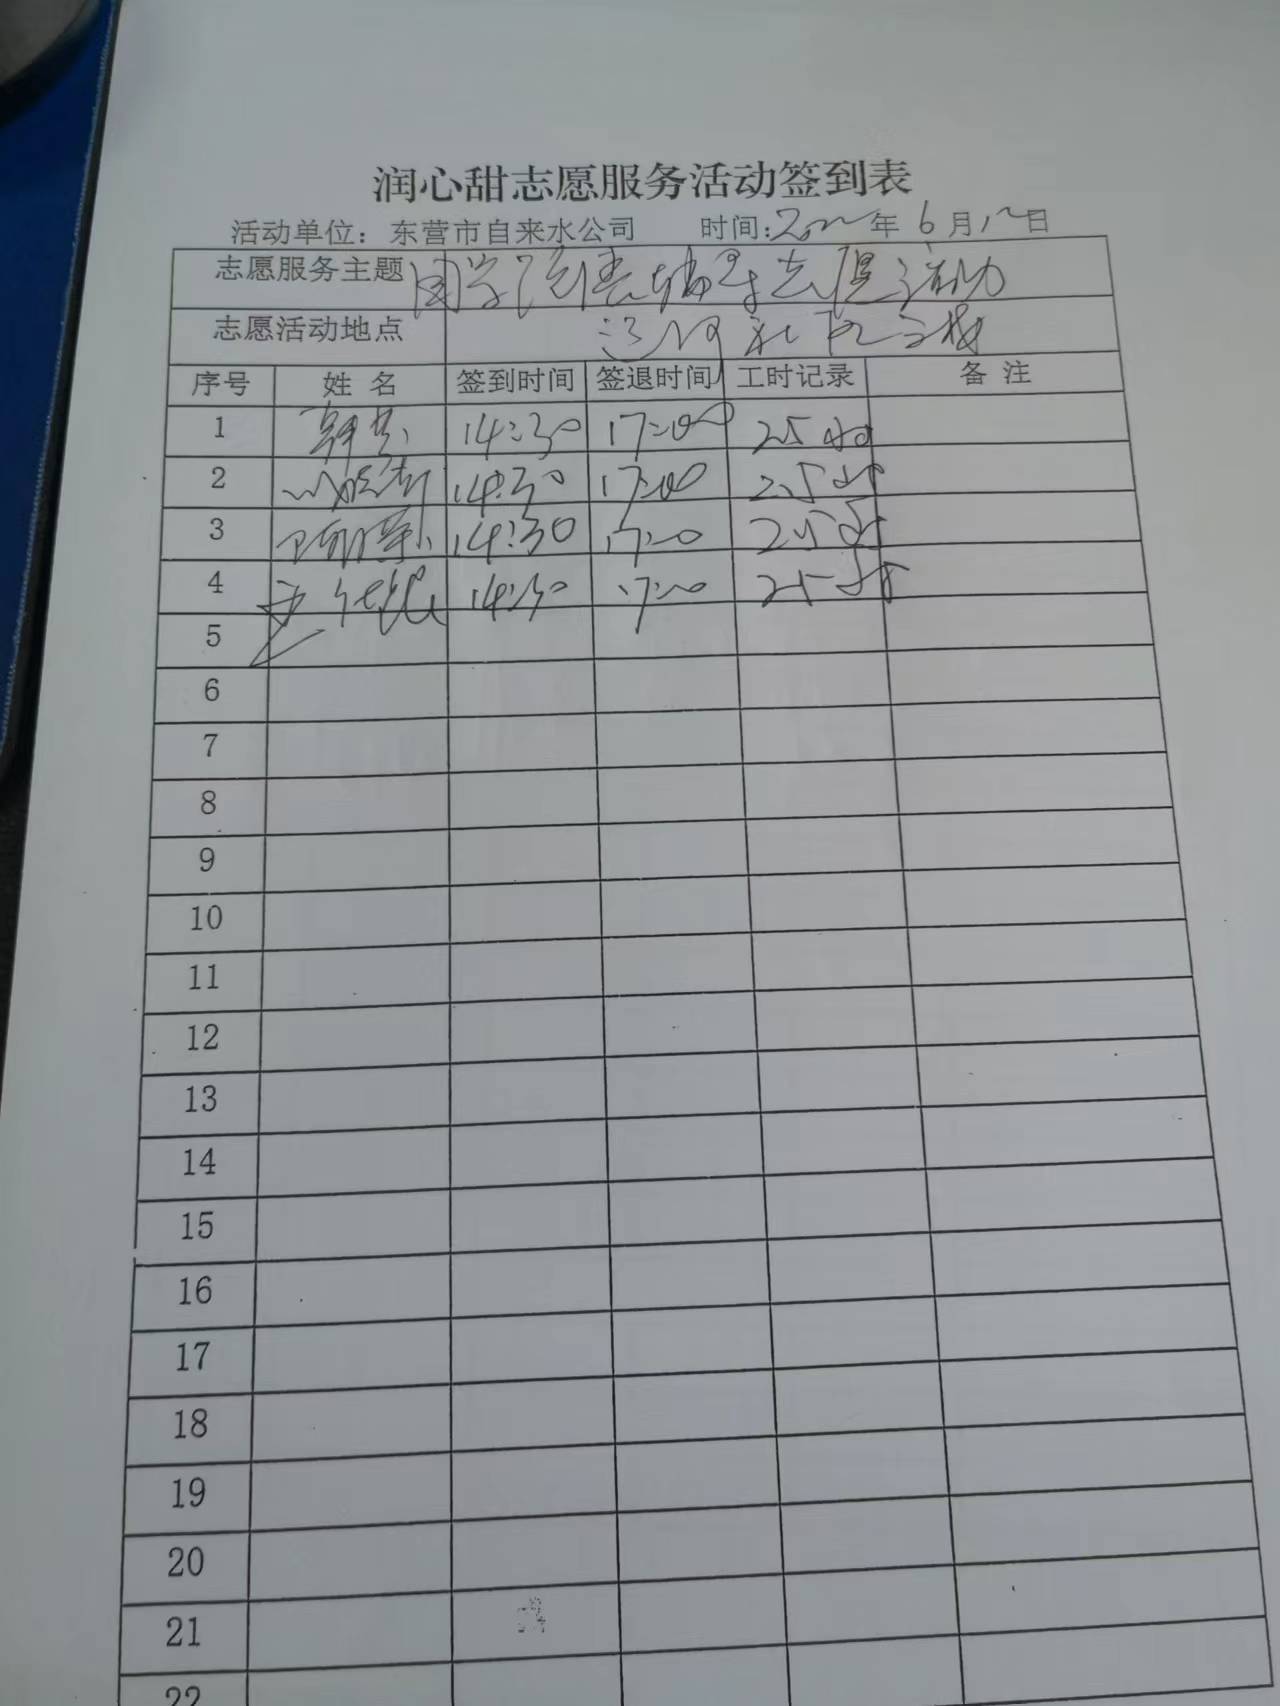 润心甜志愿服务活动签到表
活动单位：东营市自来水公司 时间:2022年6月12日
志愿服务主题 国学 辅导志愿活动
志愿活动地点
序号 姓名 签到时间 签退时间 工时记录 备注
1 14:30 17:00 2.5
2 14:30 17:00 2.5
3 14:30 17:00 2.5
4 14:30 17:00 2.5
5
6
7
8
9
10
11
12
13
14
15
16
17
18
19
20
21
22